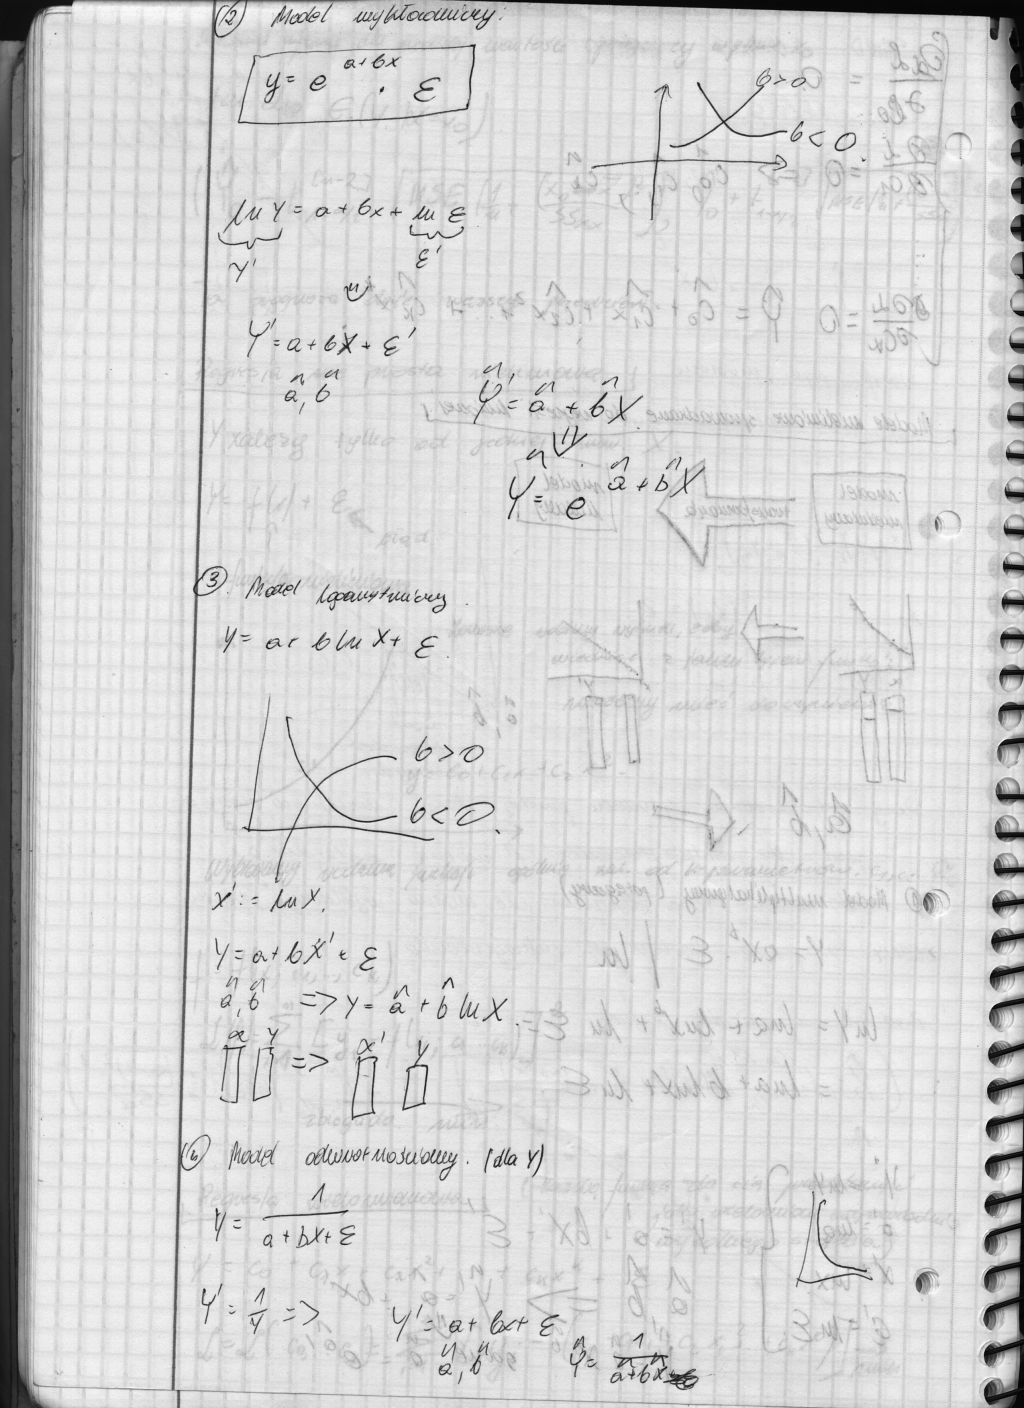 (2) Model wykładniczy:
y = e^{a+bx} · ε
b>0
b<0
ln Y = a+bx + ln ε
Y' ε'
Y' = a + bX + ε'
â, b̂
Ŷ' = â + b̂X
⇓
Ŷ = e^{â + b̂X}
(3). Model logarytmiczny.
Y = a + b ln X + ε.
b>0
b<0.
X' := ln X.
Y = a + bX' + ε
â, b̂ => Y = â + b̂ ln X.
x Y => x' Y
(4) Model odwrotnościowy. (dla Y)
Y = 1/(a+bX+ε)
Y' = 1/Y => Y' = a + bx + ε
â, b̂ Ŷ = 1/(â+b̂X)